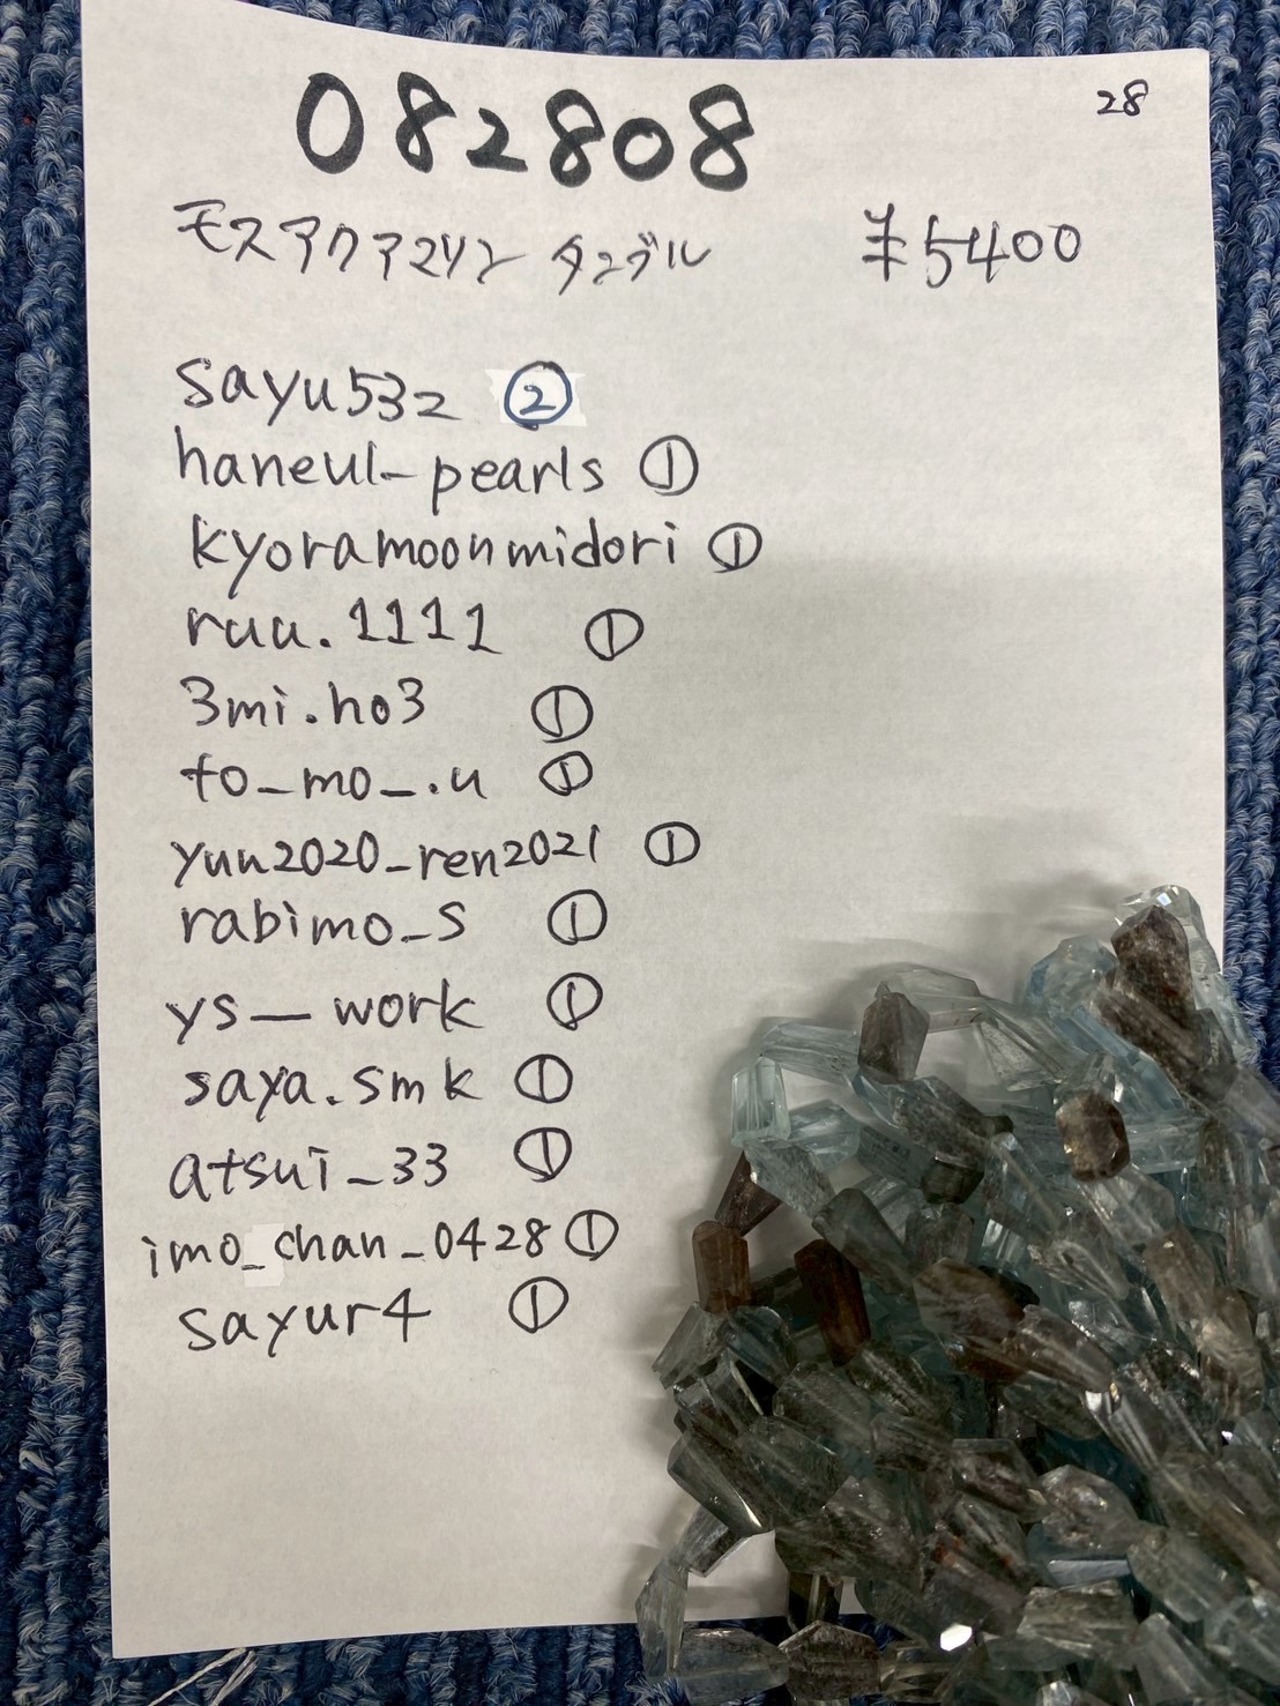 082808
28
モスアクアマリン タンブル ¥5400
sayu532 ②
haneul_pearls ①
kyoramoonmidori ①
ruu.1111 ①
3mi.ho3 ①
to_mo_.u ①
yuu2020_ren2021 ①
rabimo_s ①
ys__work ①
saya.smk ①
atsui_33 ①
imo_chan_0428 ①
sayur4 ①